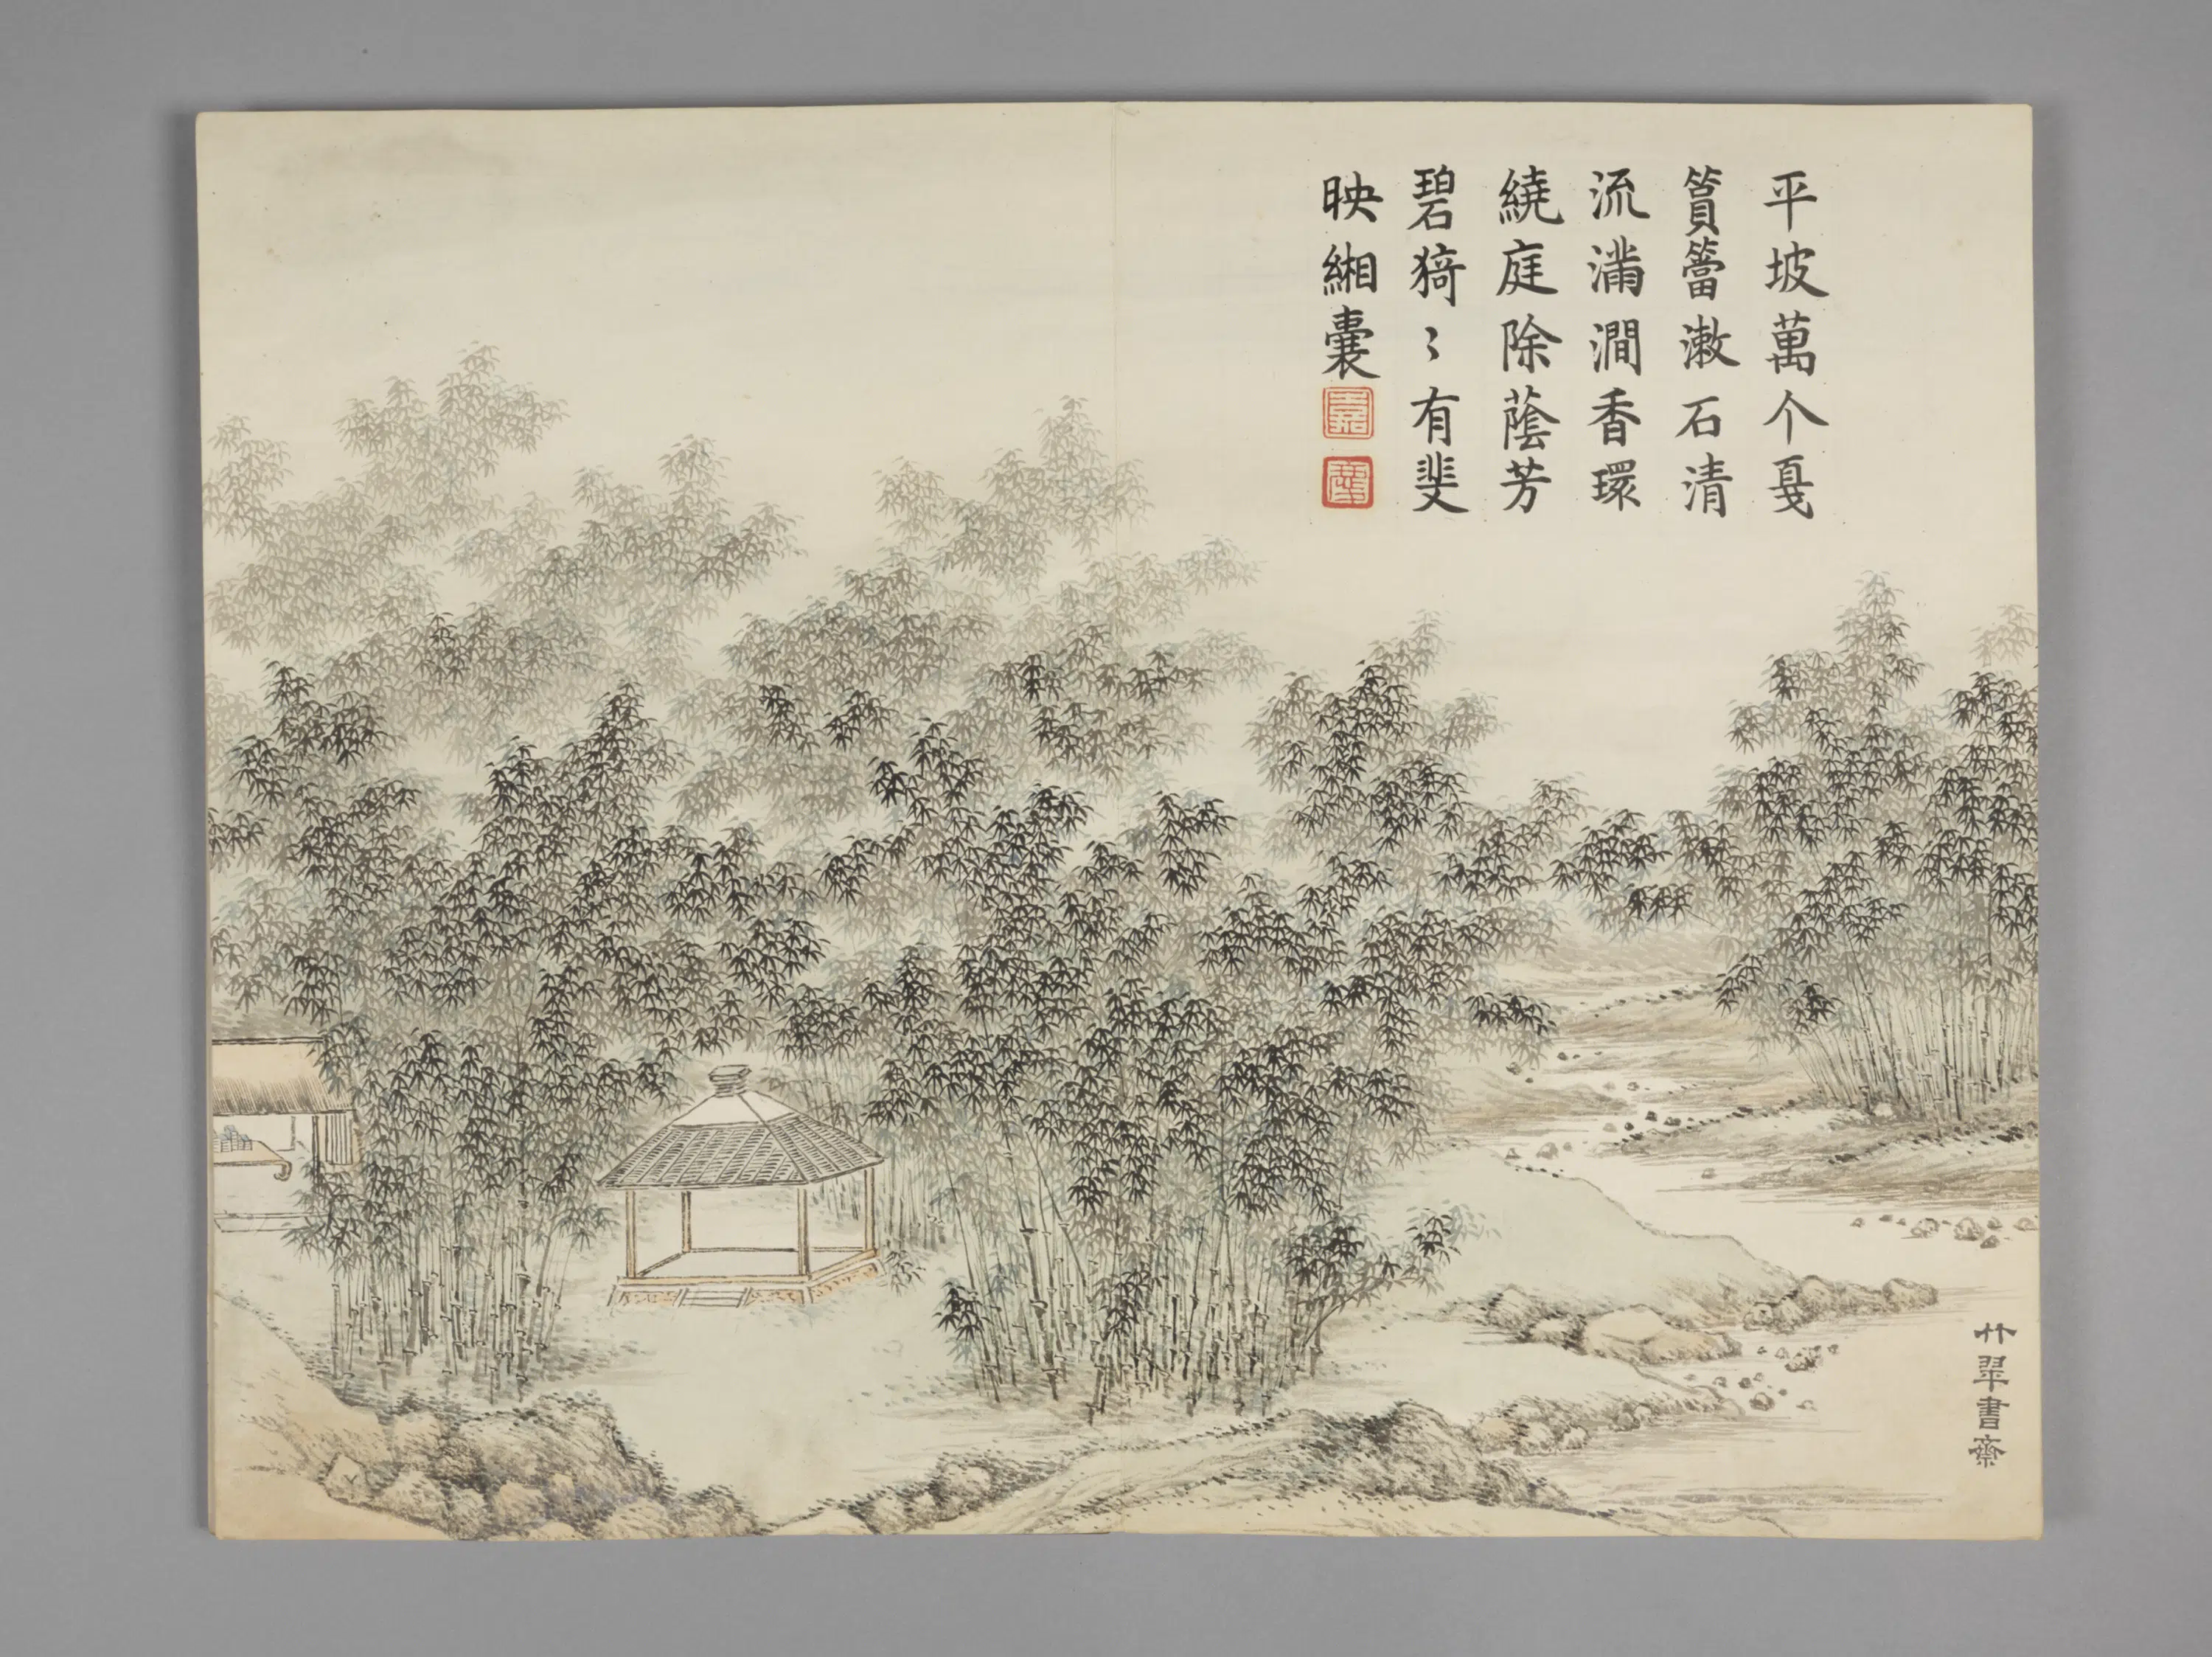 平坡萬个戛
篔簹漱石清
流滿澗香環
繞庭除蔭芳
碧猗〻有斐
映緗囊
竹翠書齋